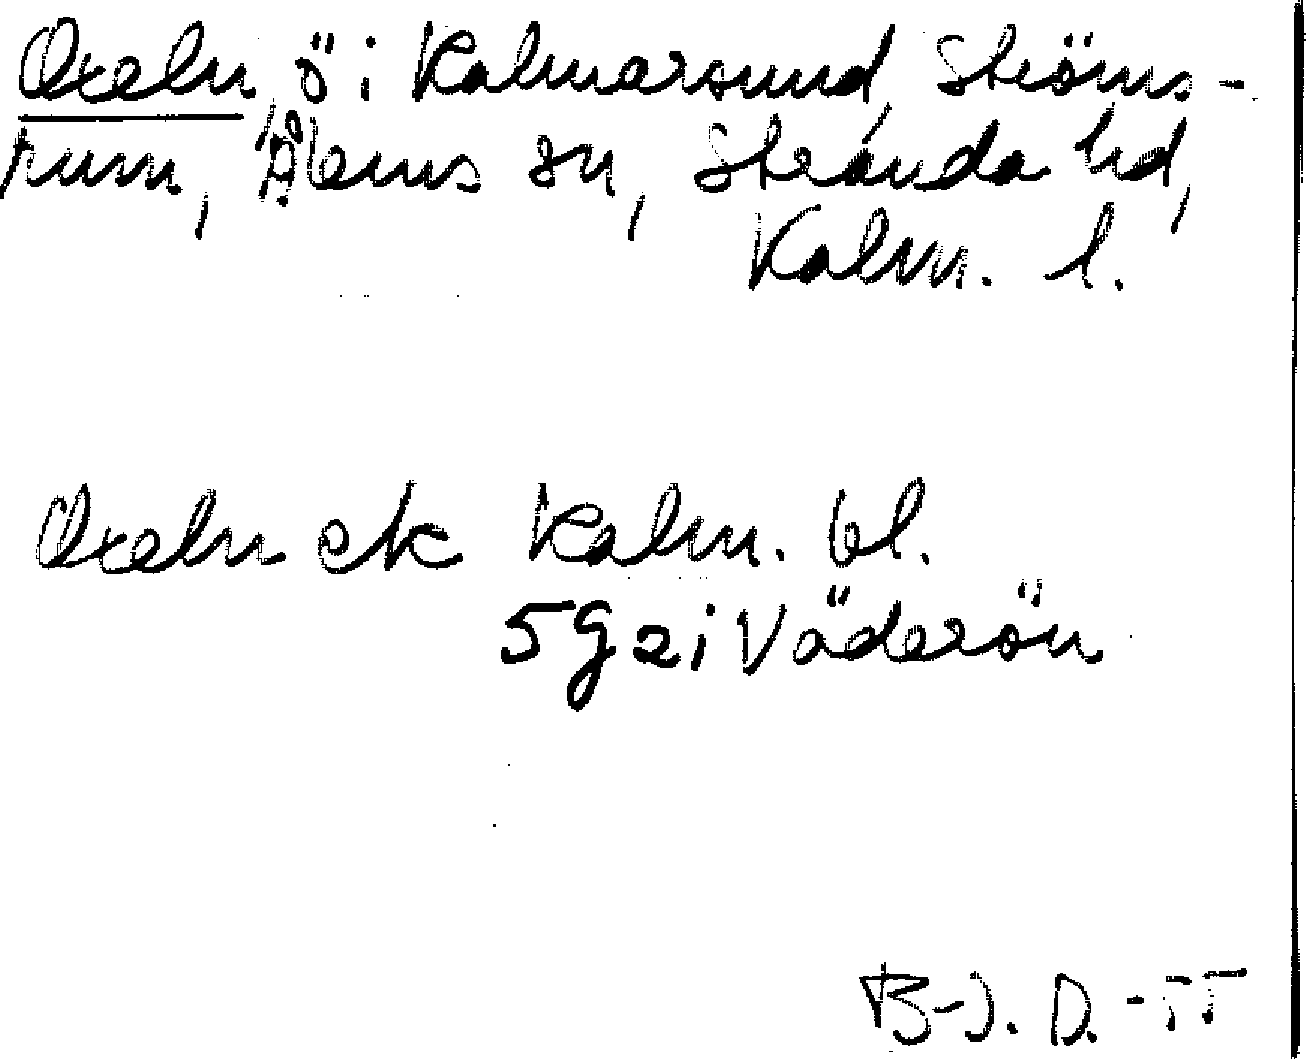 Oxeln, ö i Kalmarsund, Ströms-
rum, Ålems sn, Stranda hd,
Kalm. l.
Oxeln ek Kalm. bl.
5g2i Väderön
B-J. D. -55